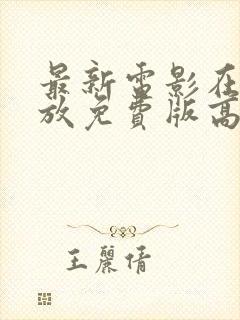 最新電影在
放免費版高
王麗倩